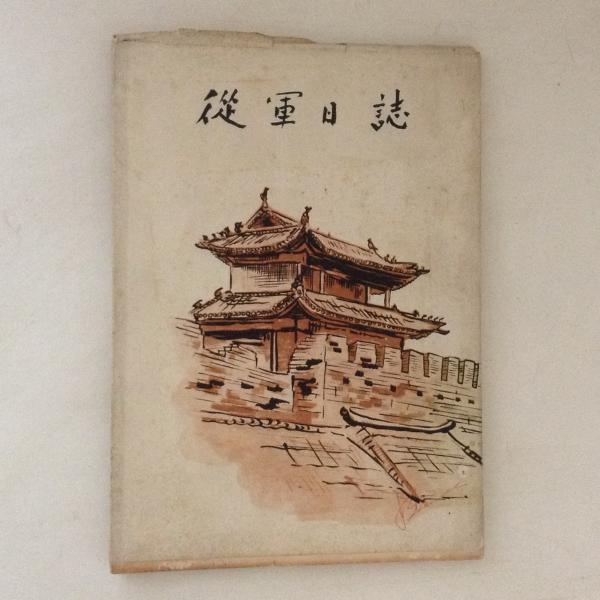 從軍日誌